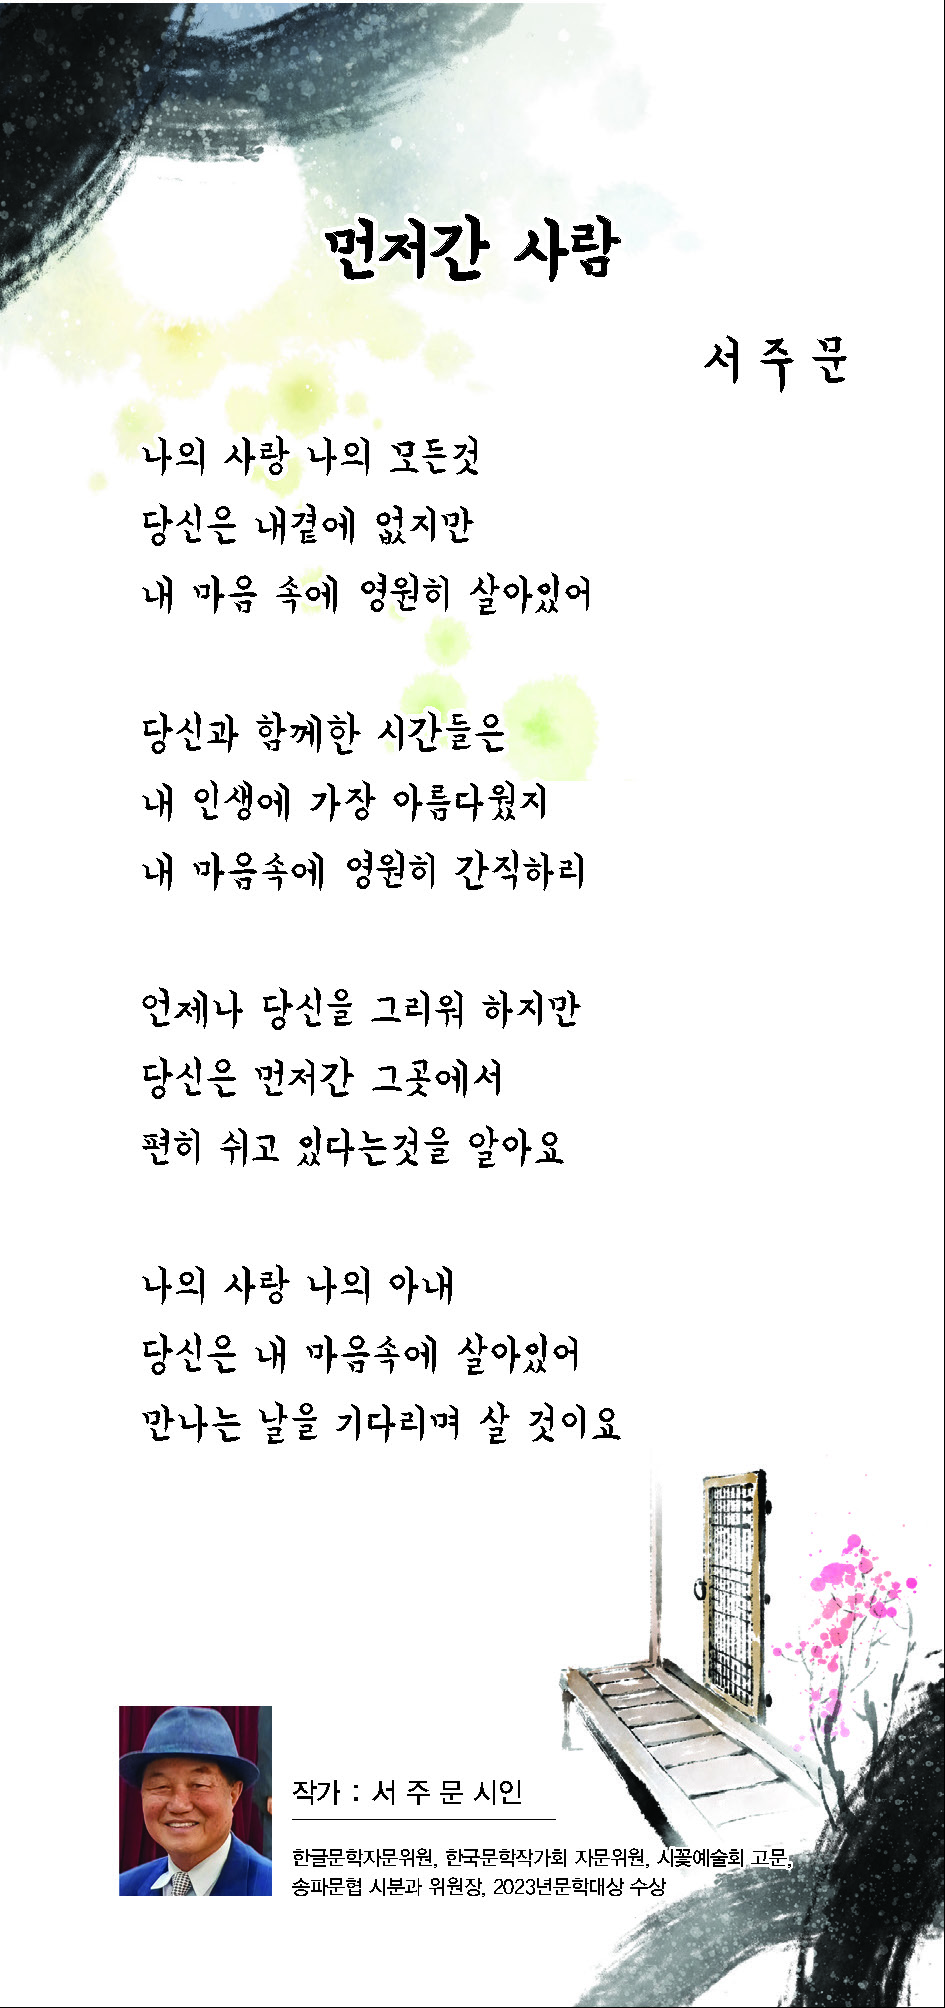 먼저간 사람
서 주 문
나의 사랑 나의 모든것
당신은 내곁에 없지만
내 마음 속에 영원히 살아있어
당신과 함께한 시간들은
내 인생에 가장 아름다웠지
내 마음속에 영원히 간직하리
언제나 당신을 그리워 하지만
당신은 먼저간 그곳에서
편히 쉬고 있다는것을 알아요
나의 사랑 나의 아내
당신은 내 마음속에 살아있어
만나는 날을 기다리며 살 것이요
작가 : 서 주 문 시인
한글문학자문위원, 한국문학작가회 자문위원, 시꽃예술회 고문,
송파문협 시분과 위원장, 2023년문학대상 수상